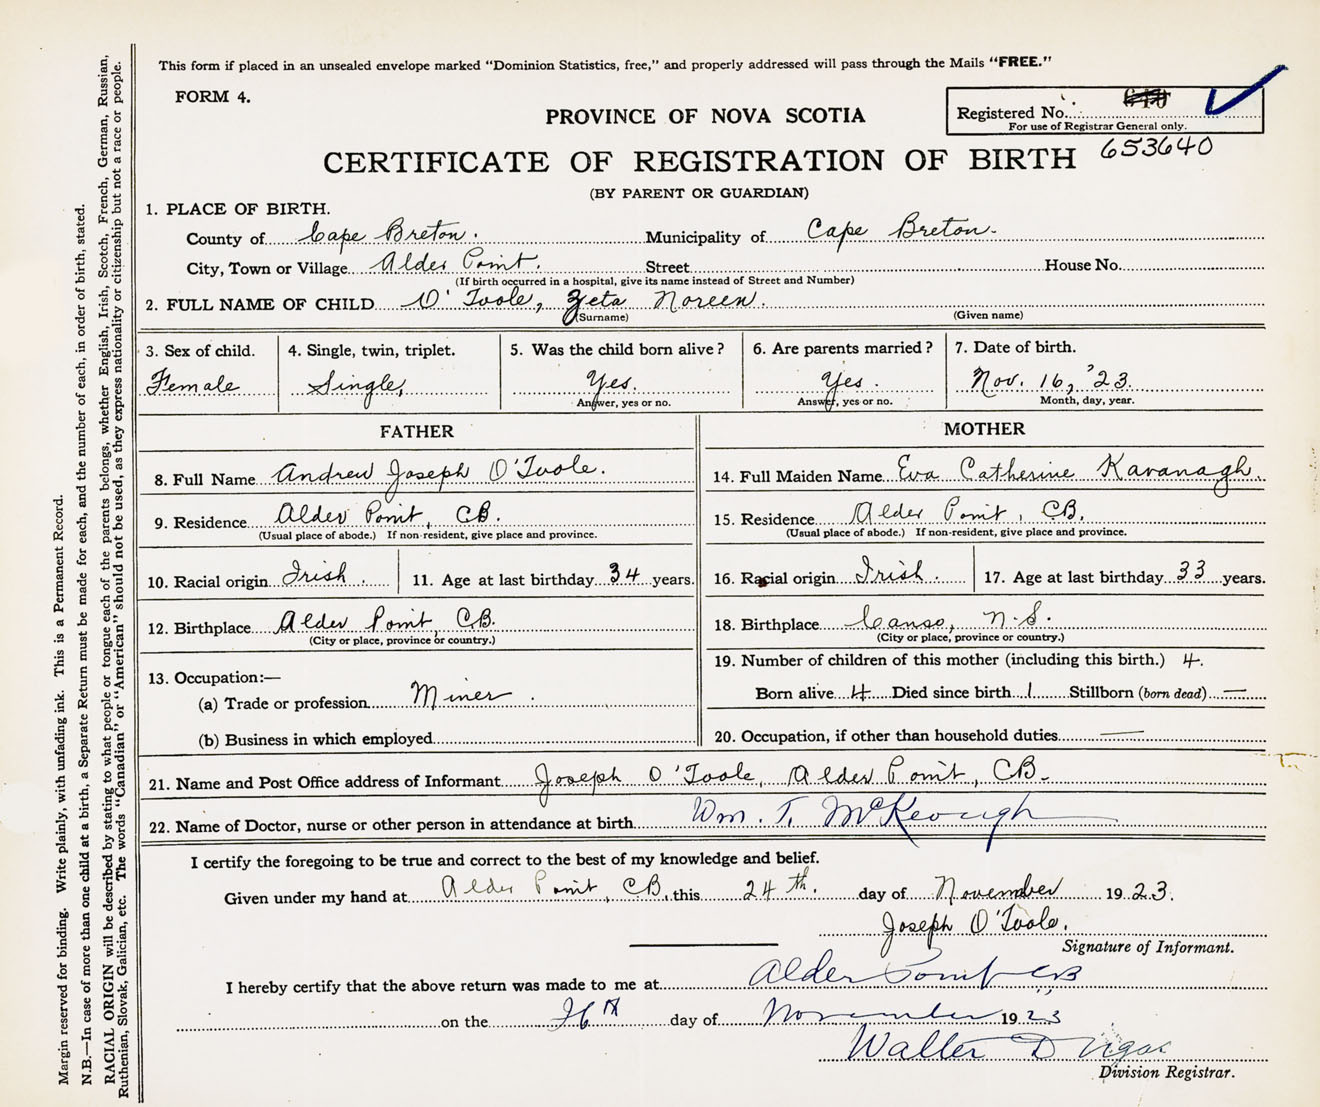 This form if placed in an unsealed envelope marked "Dominion Statistics, free," and properly addressed will pass through the Mails "FREE."
FORM 4.
PROVINCE OF NOVA SCOTIA
Registered No. 640
For use of Registrar General only.
653640
CERTIFICATE OF REGISTRATION OF BIRTH
(BY PARENT OR GUARDIAN)
1. PLACE OF BIRTH.
County of Cape Breton. Municipality of Cape Breton.
City, Town or Village Alder Point. Street House No.
(If birth occurred in a hospital, give its name instead of Street and Number)
2. FULL NAME OF CHILD O'Toole, Zeta Noreen.
(Surname) (Given name)
3. Sex of child. 4. Single, twin, triplet. 5. Was the child born alive? 6. Are parents married? 7. Date of birth.
Female Single, Yes. Yes. Nov. 16, '23.
Answer, yes or no. Answer, yes or no. Month, day, year.
FATHER MOTHER
8. Full Name Andrew Joseph O'Toole. 14. Full Maiden Name Eva Catherine Kavanagh.
9. Residence Alder Point, CB. 15. Residence Alder Point, CB.
(Usual place of abode.) If non-resident, give place and province. (Usual place of abode.) If non-resident, give place and province.
10. Racial origin Irish. 11. Age at last birthday 34 years. 16. Racial origin Irish. 17. Age at last birthday 33 years.
12. Birthplace Alder Point, CB. 18. Birthplace Canso, N.S.
(City or place, province or country.) (City or place, province or country.)
13. Occupation:— 19. Number of children of this mother (including this birth.) 4.
(a) Trade or profession Miner. Born alive 4 Died since birth 1 Stillborn (born dead) —
(b) Business in which employed 20. Occupation, if other than household duties —
21. Name and Post Office address of Informant Joseph O'Toole, Alder Point, CB.
22. Name of Doctor, nurse or other person in attendance at birth Wm. T. McKeough
I certify the foregoing to be true and correct to the best of my knowledge and belief.
Given under my hand at Alder Point, CB, this 24th. day of November 1923.
Joseph O'Toole.
Signature of Informant.
I hereby certify that the above return was made to me at Alder Point CB
on the day of November 1923
Walter
Division Registrar.
Margin reserved for binding. Write plainly, with unfading ink. This is a Permanent Record.
N.B.—In case of more than one child at a birth, a Separate Return must be made for each, and the number of each, in order of birth, stated.
RACIAL ORIGIN will be described by stating to what people or tongue each of the parents belongs, whether English, Irish, Scotch, French, German, Russian,
Ruthenian, Slovak, Galician, etc. The words "Canadian" or "American" should not be used, as they express nationality or citizenship but not a race or people.